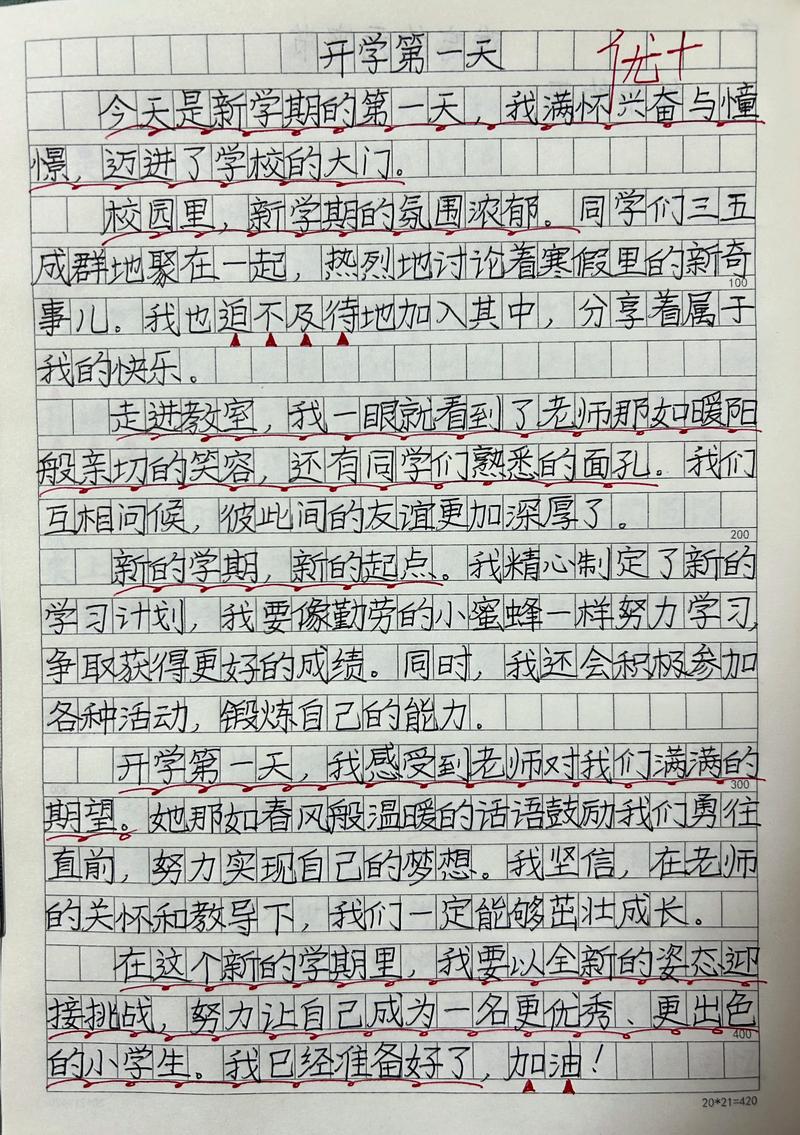 开学第一天
优+
今天是新学期的第一天，我满怀兴奋与憧
憬，迈进了学校的大门。
校园里，新学期的氛围浓郁。同学们三五
成群地聚在一起，热烈地讨论着寒假里的新奇
100
事儿。我也迫不及待地加入其中，分享着属于
我的快乐。
走进教室，我一眼就看到了老师那如暖阳
般亲切的笑容，还有同学们熟悉的面孔。我们
互相问候，彼此间的友谊更加深厚了。
200
新的学期，新的起点。我精心制定了新的
学习计划，我要像勤劳的小蜜蜂一样努力学习，
争取获得更好的成绩。同时，我还会积极参加
各种活动，锻炼自己的能力。
开学第一天，我感受到老师对我们满满的
300
期望。她那如春风般温暖的话语鼓励我们勇往
直前，努力实现自己的梦想。我坚信，在老师
的关怀和教导下，我们一定能够茁壮成长。
在这个新的学期里，我要以全新的姿态迎
接挑战，努力让自己成为一名更优秀、更出色
400
的小学生。我已经准备好了，加油！
20*21=420